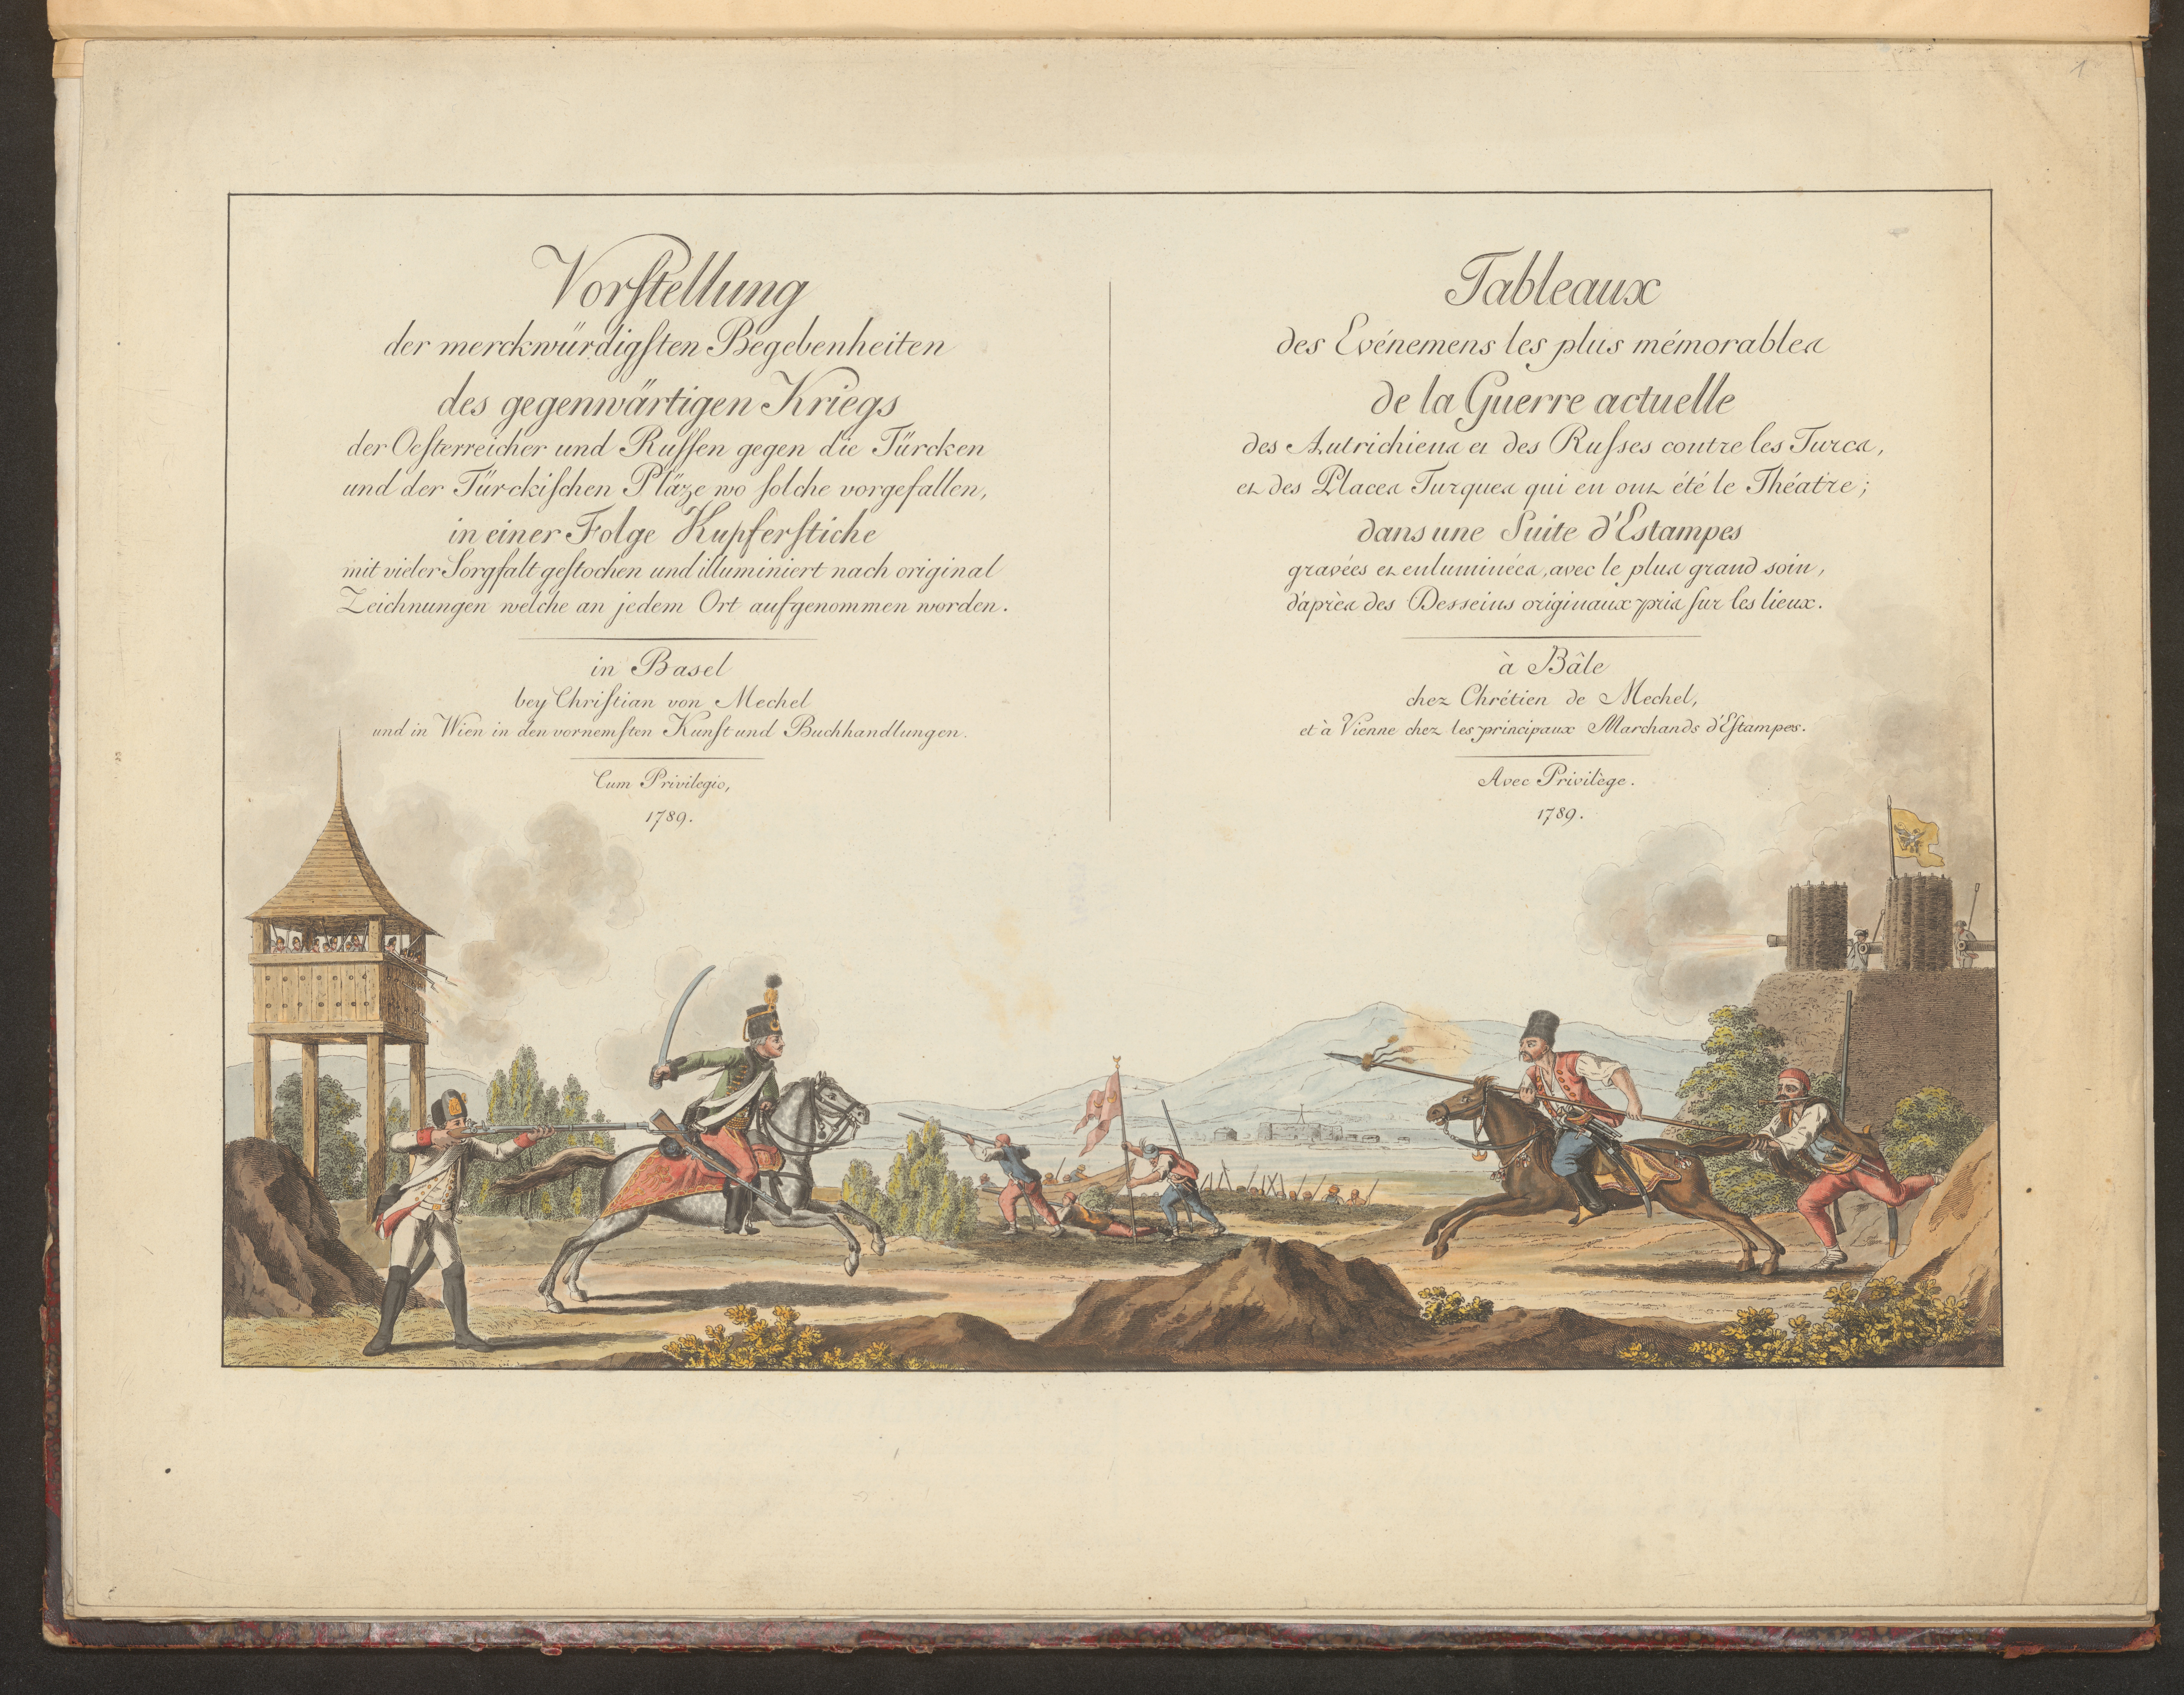 1
Vorſtellung
der merckwürdigſten Begebenheiten
des gegenwärtigen Kriegs
der Oeſterreicher und Ruſſen gegen die Türcken
und der Türckiſchen Pläze wo ſolche vorgefallen,
in einer Folge Kupferſtiche
mit vieler Sorgfalt geſtochen und illuminiert nach original
Zeichnungen welche an jedem Ort aufgenommen worden.
in Basel
bey Chriſtian von Mechel
und in Wien in den vornemſten Kunſt und Buchhandlungen.
Cum Privilegio,
1789.
Tableaux
des Evénemens les plus mémorables
de la Guerre actuelle
des Autrichiens et des Ruſses contre les Turcs,
et des Places Turques qui en ont été le Théatre;
dans une Suite d'Estampes
gravées et enluminées, avec le plus grand soin,
d'après des Desseins originaux pris ſur les lieux.
à Bâle
chez Chrétien de Mechel,
et à Vienne chez les principaux Marchands d'Eſtampes.
Avec Privilège.
1789.